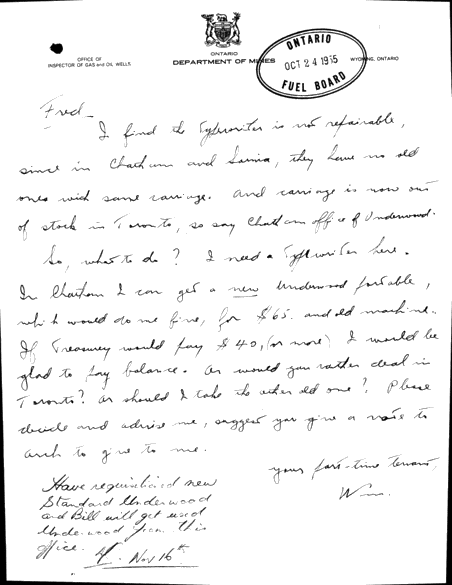 ONTARIO
DEPARTMENT OF MINES
OFFICE OF
INSPECTOR OF GAS AND OIL WELLS
WYOMING, ONTARIO
ONTARIO
OCT 24 1935
FUEL BOARD
Fred_
I find the Typewriter is not repairable,
since in Chatham and Sarnia, they have no old
ones with same carriage. And carriage is now out
of stock in Toronto, so say Chatham office of Underwood.
So, what to do? I need a Typewriter here.
In Chatham I can get a new Underwood portable,
which would do me fine, for $65. and old machine.
If Treasury would pay $40, (or more) I would be
glad to pay balance. Or would you rather deal in
Toronto? Or should I take the other old one? Please
decide and advise me, suggest you give a note to
Arch to give to me.
your part-time servant,
Wm.
Have requisitioned new
Standard Underwood
and Bill will get used
Underwood from this
office.
Nov 16th